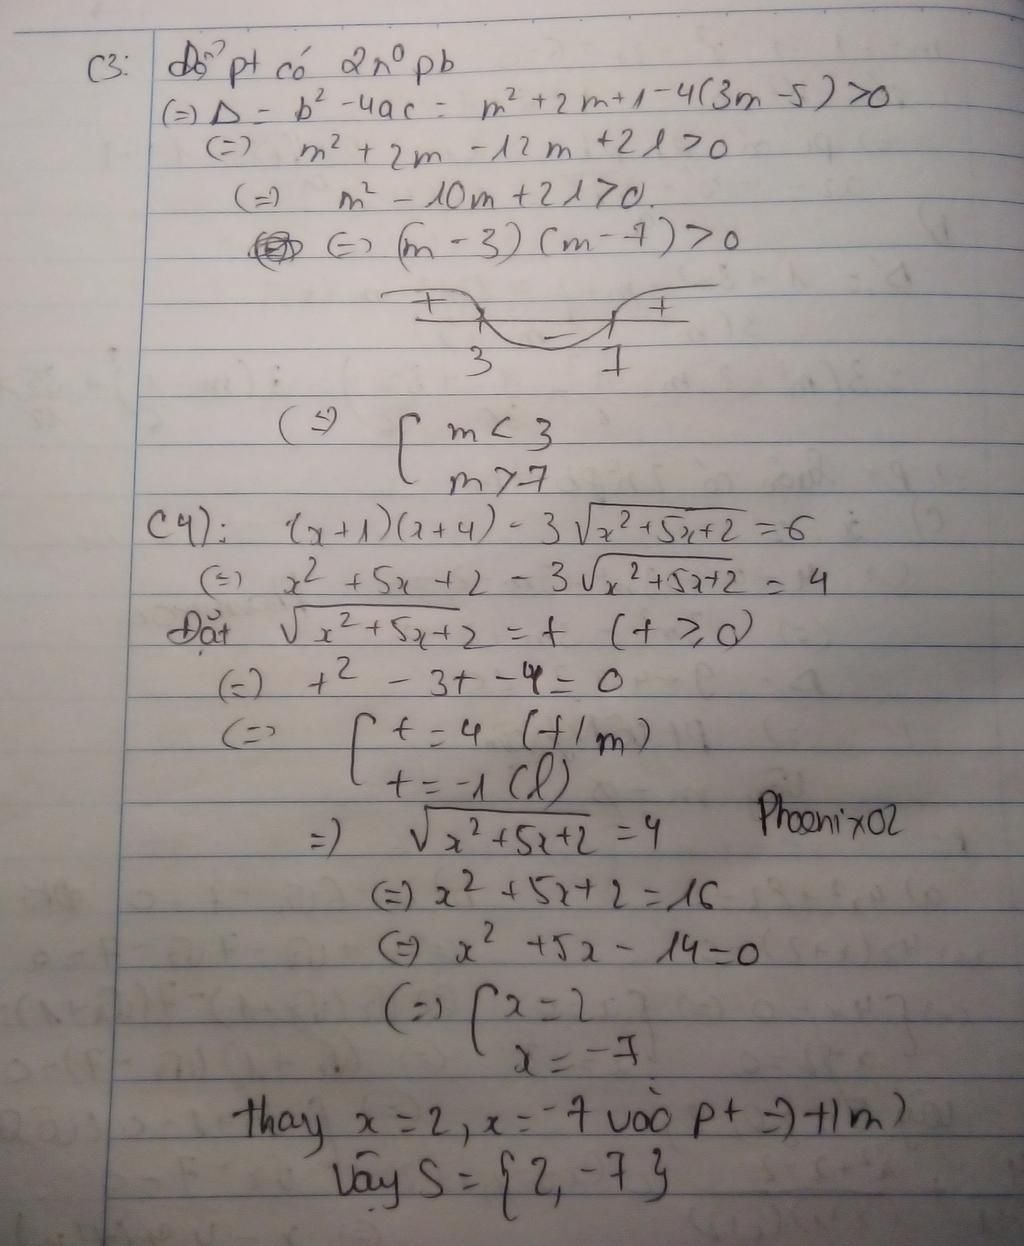 C3: Để pt có 2 n⁰ pb
(=) Δ = b² - 4ac = m² + 2m + 1 - 4(3m - 5) > 0
(=) m² + 2m - 12m + 21 > 0
(=) m² - 10m + 21 > 0.
(=) (m - 3)(m - 7) > 0
+ - +
3 7
(=) [ m < 3
m > 7
C4): (x + 1)(x + 4) - 3√(x² + 5x + 2) = 6
(=) x² + 5x + 2 - 3√(x² + 5x + 2) = 4
Đặt √(x² + 5x + 2) = t (t ≥ 0)
(=) t² - 3t - 4 = 0
(=) [ t = 4 (t/m)
t = -1 (l)
=) √(x² + 5x + 2) = 4
Phoenix02
(=) x² + 5x + 2 = 16
(=) x² + 5x - 14 = 0
(=) [ x = 2
x = -7
thay x = 2, x = -7 vào pt =) t/m)
Vậy S = {2, -7}